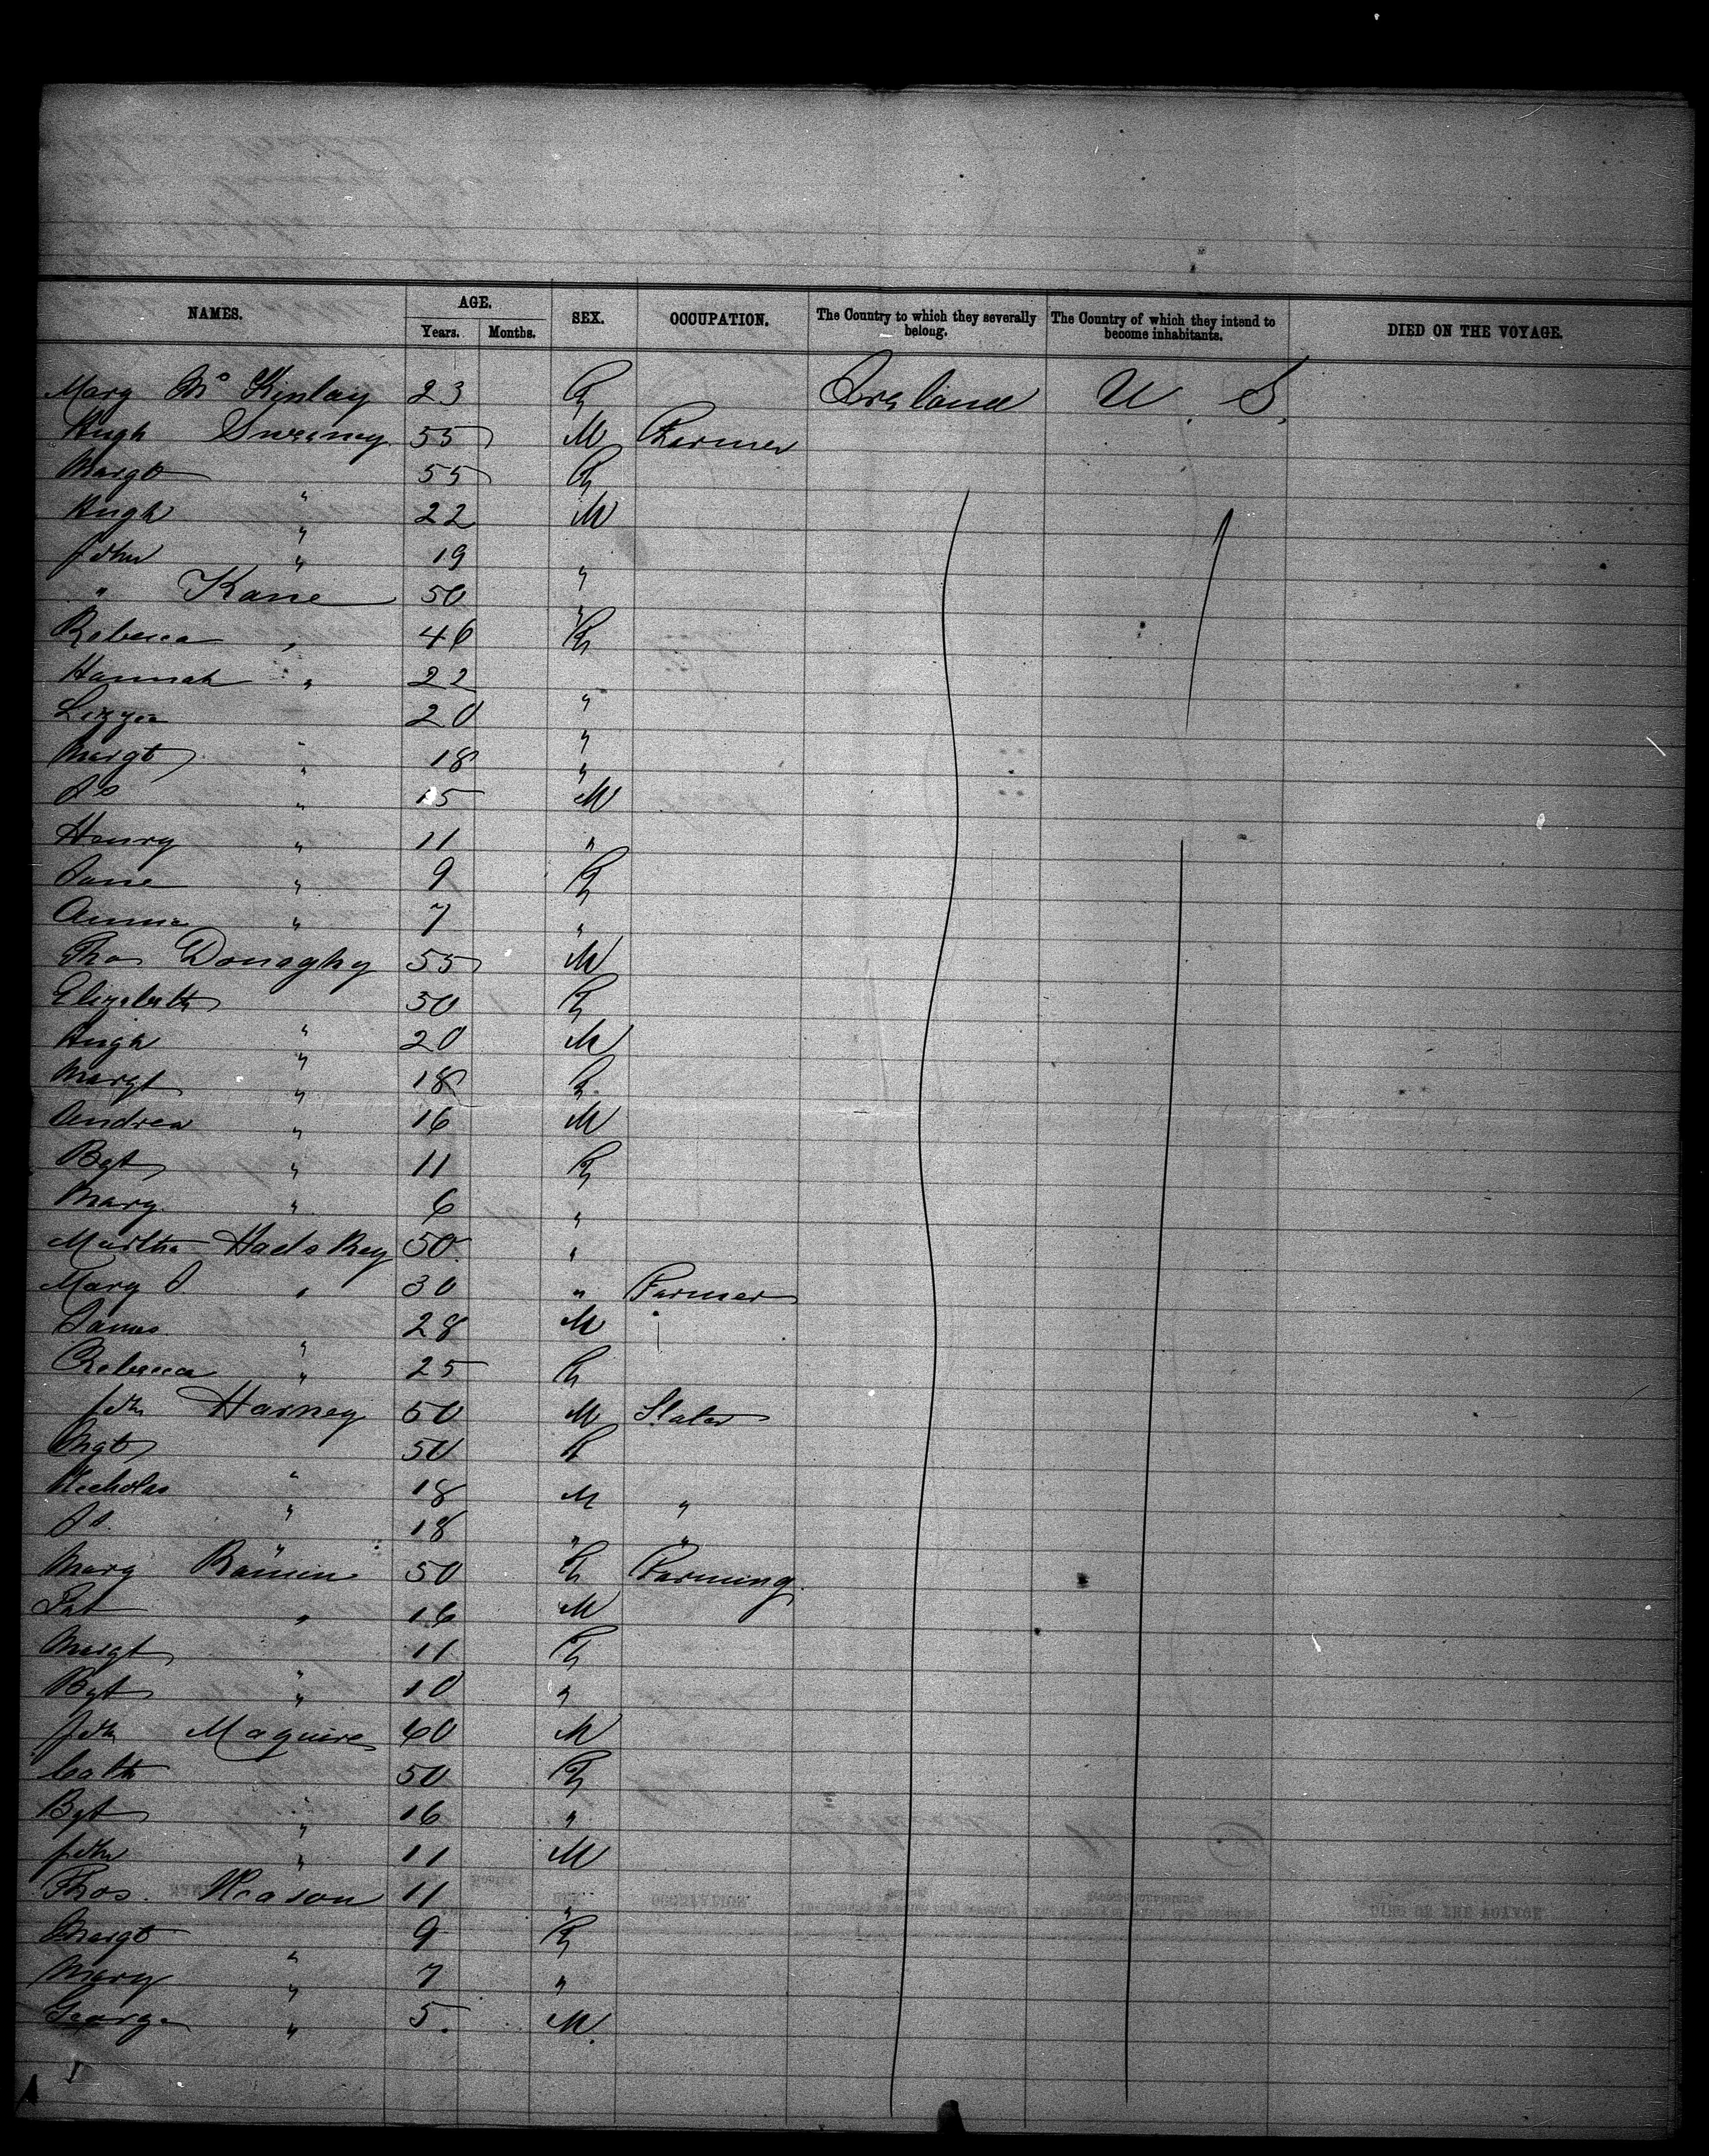 NAMES. AGE. SEX. OCCUPATION. The Country to which they severally belong. The Country of which they intend to become inhabitants. DIED ON THE VOYAGE.
Years. Months.
Mary McKinlay 23 F Ireland U. S.
Hugh Sweeney 55 M Farmer
Margt " 55 F
Hugh " 22 M
John " 19 "
" Kane 50 "
Rebecca " 46 F
Hannah " 22 "
Lizzie " 20 "
Margt " 18 "
Js " 15 M
Henry " 11 "
Jane " 9 F
Annie " 7 "
Thos Donaghy 55 M
Elizabeth " 50 F
Hugh " 20 M
Margt " 18 F
Andrew " 16 M
Bgt " 11 F
Mary " 6 "
Martha 50 "
Mary J. " 30 " Farmer
James " 28 M "
Rebecca " 25 F
John Harney 50 M Slater
Mgt " 50 F
Nicholas " 18 M "
Js. " 18 " "
Mary 50 F Farming
Pat " 16 M
Margt " 11 F
Bgt " 10 "
John Maguire 60 M
Cath " 50 F
Bgt " 16 "
John " 11 M
Thos. 11 "
Margt " 9 F
Mary " 7 "
George " 5. M.